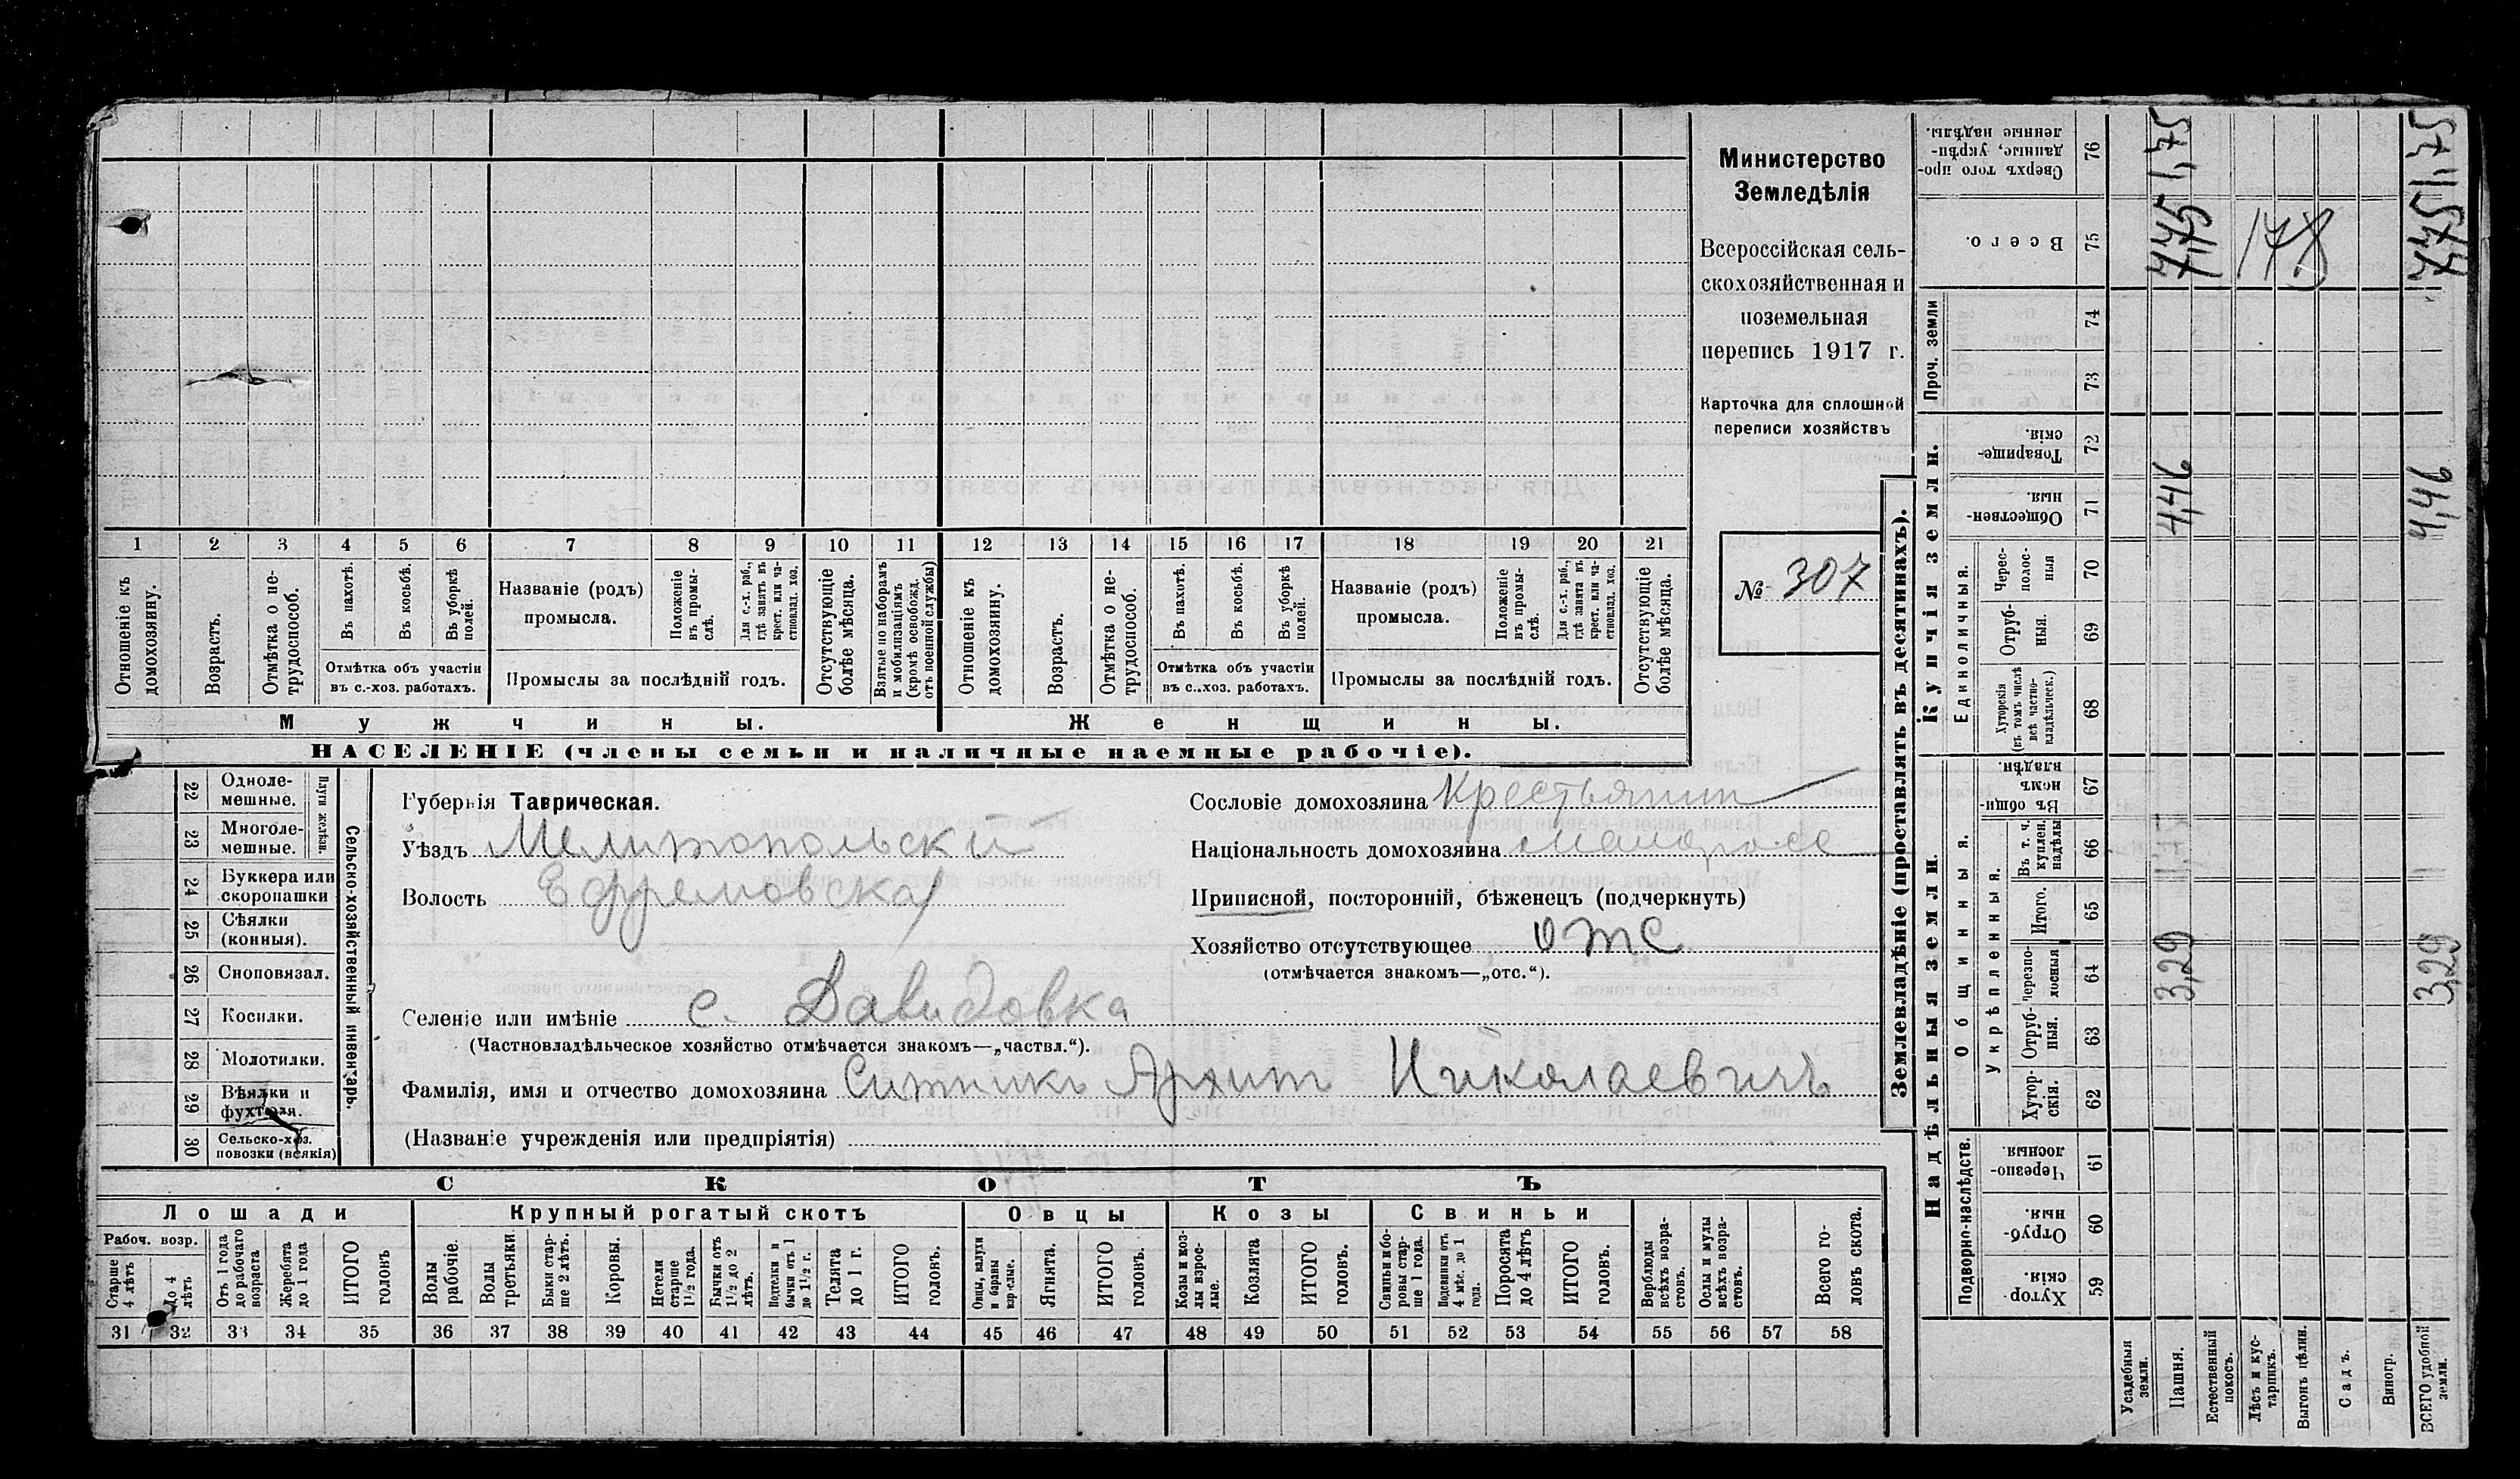 Министерство
Земледѣлія
Всероссійская сель-
скохозяйственная и
поземельная
перепись 1917 г.
Карточка для сплошной
переписи хозяйствъ
№ 307
1 2 3 4 5 6 7 8 9 10 11 12 13 14 15 16 17 18 19 20 21
Отношеніе къ домохозяину.
Возрастъ.
Отмѣтка о не-трудоспособ.
Въ пахотѣ.
Въ косьбѣ.
Въ уборкѣ полей.
Отмѣтка объ участіи
въ с.-хоз. работахъ.
Названіе (родъ)
промысла.
Положеніе въ промы-слѣ.
Для с.-х. раб., гдѣ занятъ въ крест. или ча-стновлад. хоз.
Промыслы за послѣдній годъ.
Отсутствующіе болѣе мѣсяца.
Взятые по наборамъ и мобилизаціямъ (кромѣ освобожд. отъ военной службы)
Отношеніе къ домохозяину.
Возрастъ.
Отмѣтка о не-трудоспособ.
Въ пахотѣ.
Въ косьбѣ.
Въ уборкѣ полей.
Отмѣтка объ участіи
въ с..хоз. работахъ.
Названіе (родъ)
промысла.
Положеніе въ промы-слѣ.
Для с.-х. раб., гдѣ занята въ крест. или ча-стновлад. хоз.
Промыслы за послѣдній годъ.
Отсутствующіе болѣе мѣсяца.
Мужчины.
Женщины.
НАСЕЛЕНІЕ (члены семьи и наличные наемные рабочіе).
22 Одноле-мешные.
23 Многоле-мешные.
Плуги желѣзн.
24 Буккера или скоропашки
25 Сѣялки (конныя).
26 Сноповязал.
27 Косилки.
28 Молотилки.
29 Вѣялки и фухтеля.
30 Сельско-хоз. повозки (всякія)
Сельско-хозяйственный инвентарь.
Губернія Таврическая.
Уѣздъ Мелитопольскій
Волость Ефремовская
Сословіе домохозяина Крестьянин
Національность домохозяина малоросс
Приписной, посторонній, бѣженец (подчеркнуть)
Хозяйство отсутствующее отс
(отмѣчается знакомъ—„отс.“).
Селеніе или имѣніе с. Давидовка
(Частновладѣльческое хозяйство отмѣчается знакомъ—„частвл.“).
Фамилія, имя и отчество домохозяина Ситникъ Архип Николаевичъ
(Названіе учрежденія или предпріятія)
СКОТЪ
Лошади
Крупный рогатый скотъ
Овцы
Козы
Свиньи
Рабоч. возр.
Старше 4 лѣтъ
До 4 лѣтъ
Отъ 1 года до рабочаго возраста
Жеребята до 1 года
ИТОГО головъ
Волы рабочіе.
Волы третьяки.
Быки стар-ше 2 лѣтъ.
Коровы.
Нетели старше 1½ года.
Бычки отъ 1½ до 2 лѣтъ.
Подтелки и бычки отъ 1 до 1½ г.
Телята до 1 г.
ИТОГО головъ.
Овцы, валухи и бараны взрослые.
Ягнята.
ИТОГО головъ.
Козы и коз-лы взрос-лые.
Козлята
ИТОГО головъ.
Свиньи и бо-ровы стар-ше 1 года.
Подсвинки отъ 4 мѣс. до 1 года.
Поросята до 4 лѣтъ
ИТОГО головъ.
Верблюды всѣхъ возра-стовъ.
Ослы и мулы всѣхъ возра-стовъ.
Всего го-ловъ скота.
31 32 33 34 35 36 37 38 39 40 41 42 43 44 45 46 47 48 49 50 51 52 53 54 55 56 57 58
Землевладѣніе (проставлять въ десятинахъ).
Надѣльныя земли.
Купчія земли.
Проч. земли
Подворно-наслѣдств.
Общинныя.
Укрѣпленныя.
Единоличныя.
Хутор-скія. 59
Отруб-ныя. 60
Черезпо-лосныя. 61
Хутор-скія. 62
Отруб-ныя. 63
Черезпо-лосныя 64
Итого. 65
Въ т. ч. куплен. надѣлы 66
Въ общи-номъ владѣн. 67
Хуторскія (въ томъ числѣ всѣ частно-владѣльческ.) 68
Отруб-ныя. 69
Черес-полос-ныя 70
Обществен-ныя. 71
Товарище-скія. 72
73
74
Всего. 75
Сверхъ того про-данные, укрѣп-ленные надѣлы. 76
Усадебныя земли.
Пашня. 3,29 4,46 7,75 7,75 1,75
Естественный покосъ.
Лѣсъ и кус-тарникъ.
178
Выгонъ цѣлин.
Садъ.
Виногр.
ВСЕГО удобной земли. 3,29 4,46 7,75 1,75